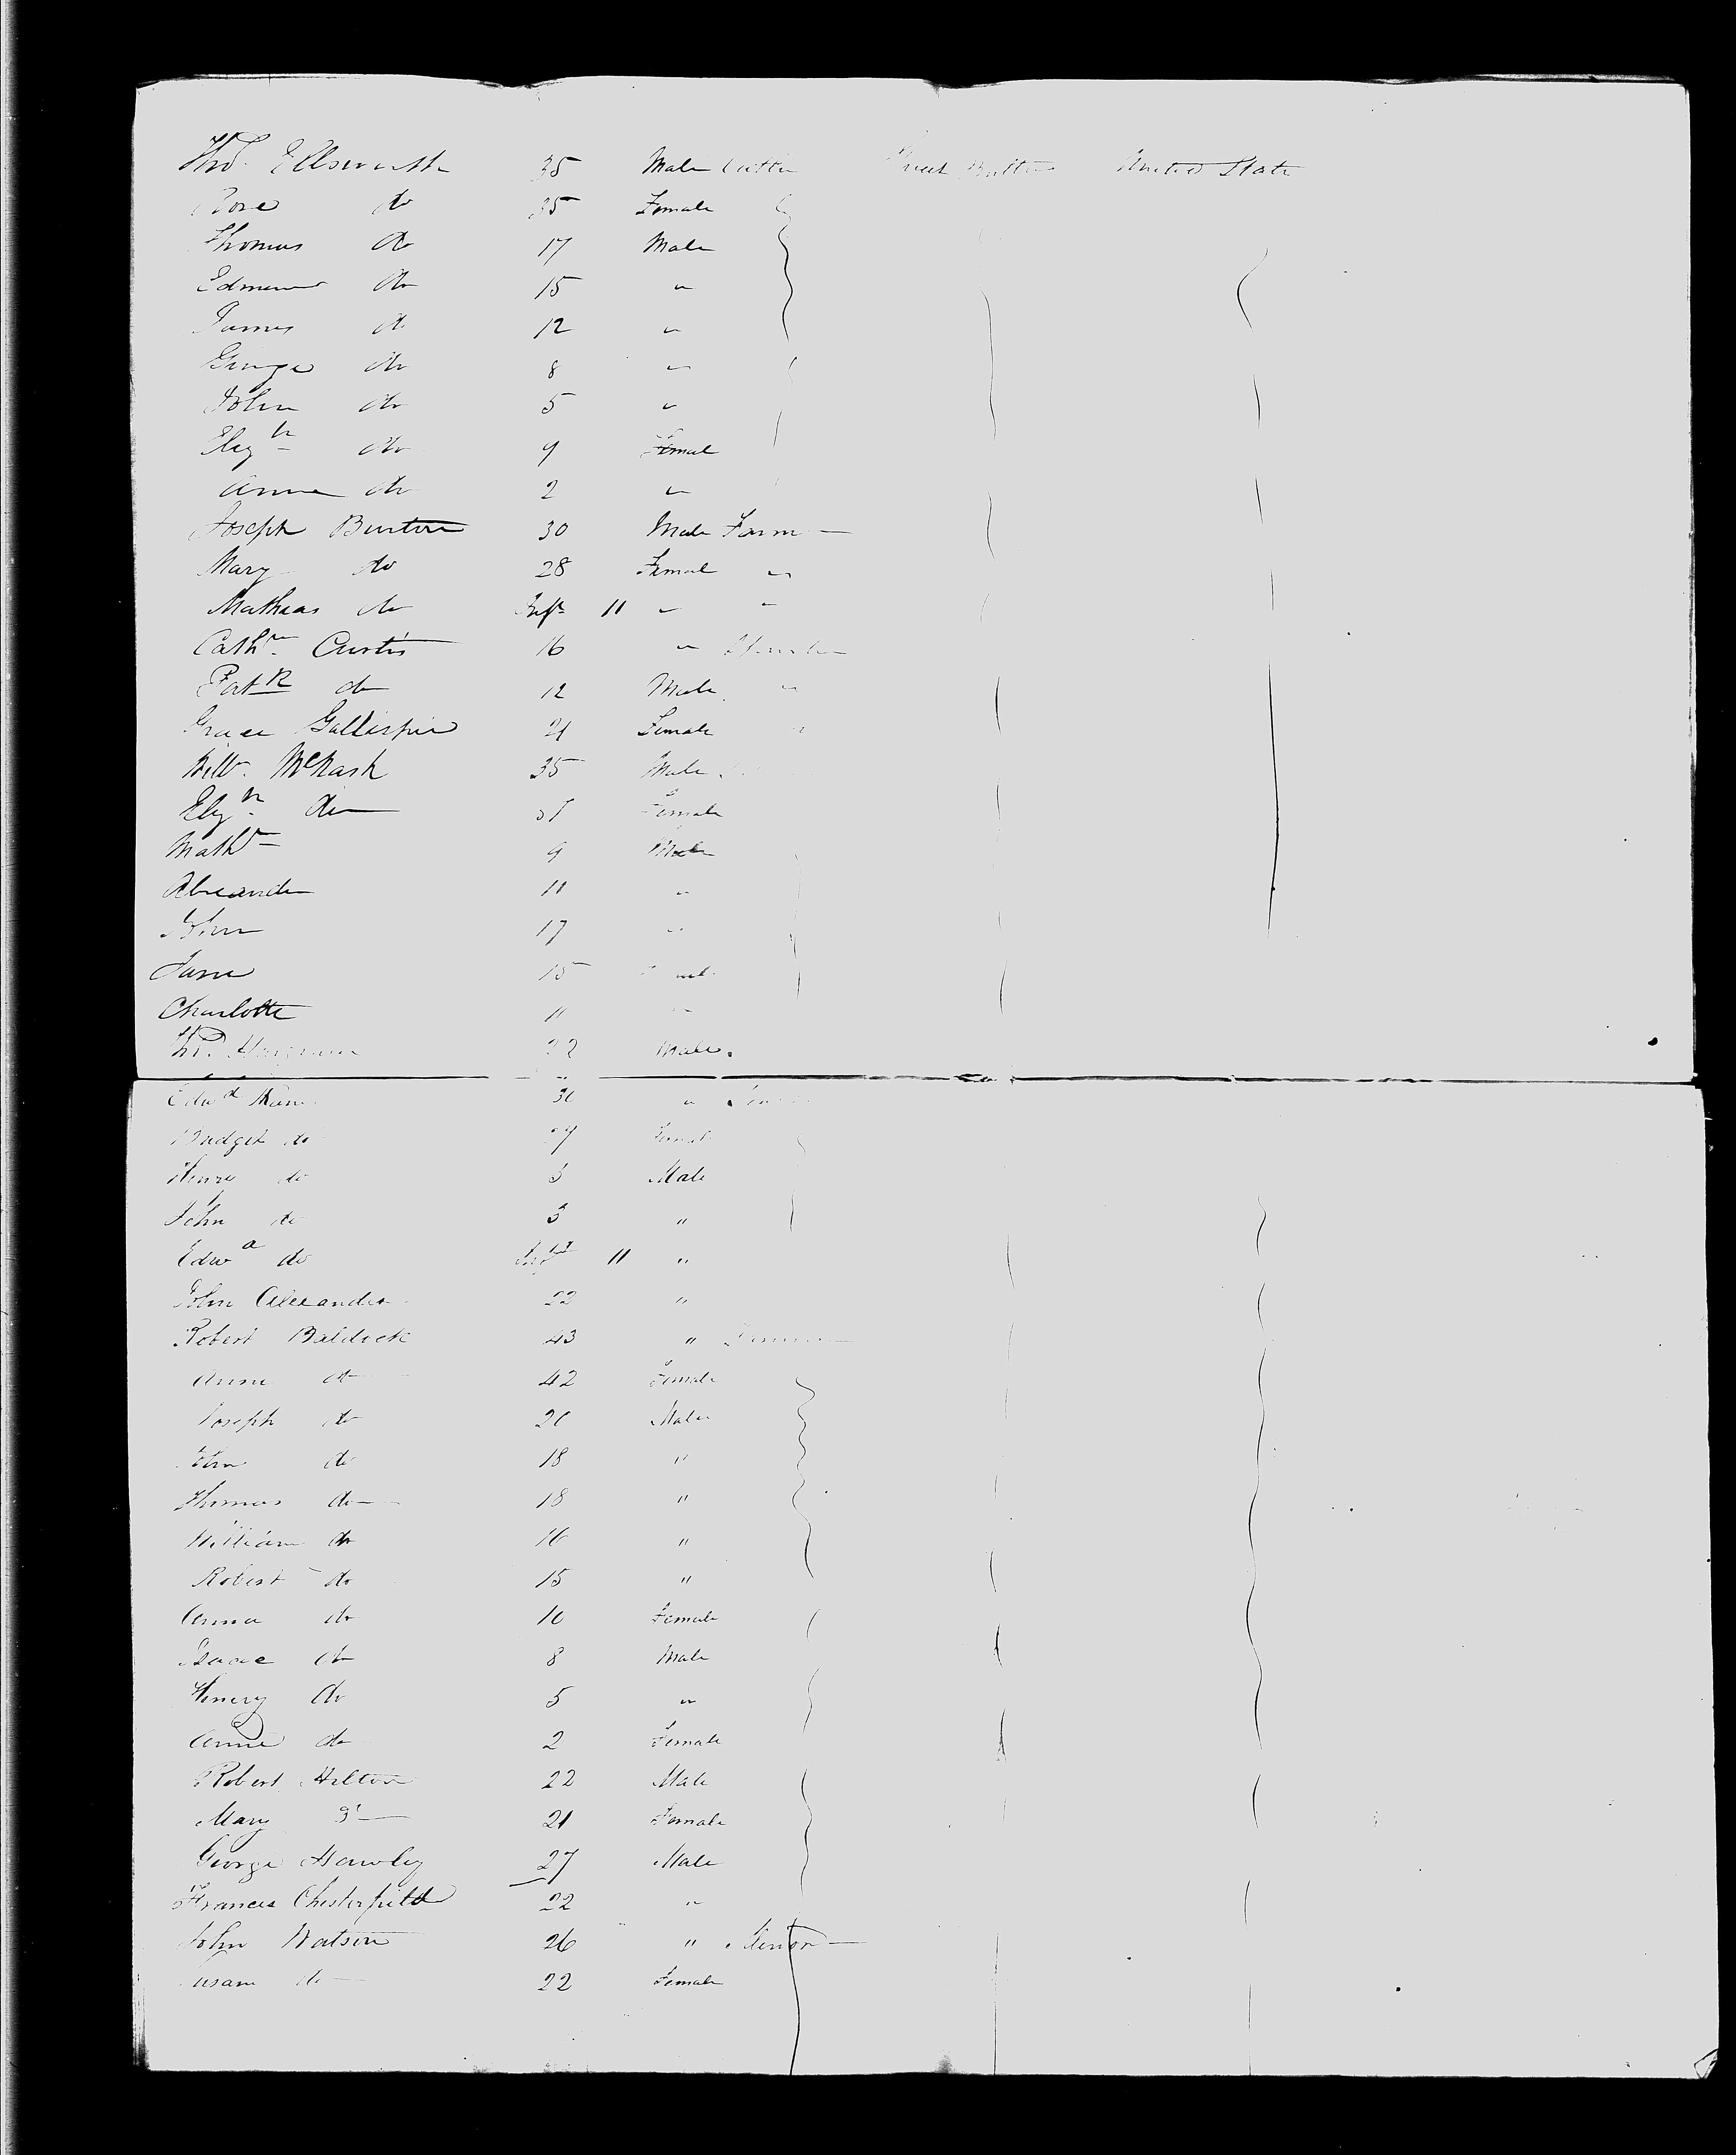 Thos. Ellsworth 35 Male Great Britton United State
Rose do 35 Female
Thomas do 17 Male
Edmund do 15 "
James do 12 "
George do 8 "
John do 5 "
Elizh do 9 Femal
Anne do 2 "
Joseph Burton 30 Male Farm
Mary do 28 Femal "
Mathias do Inft 11 " "
Cathn Curtis 16 " Spinster
Patk do 12 Male "
Grace Gallispie 21 Female "
Willm. McNash 35 Male
Elizh do Female
Mathw 9 Male
Alexander 11 "
John 17 "
Jane 15
Charlotte 11 "
Thos. 22 Male
Edwd 30 "
Bridget do Femal
Henry do 5 Male
John do 3 "
Edwd do Inft 11 "
John Alexander 22 "
Robert Baldock 43 " Farmer
Anne do 42 Female
Joseph do 20 Male
John do 18 "
Thomas do 18 "
William do 16 "
Robert do 15 "
Anna do 10 Female
Isaac do 8 Male
Henery do 5 "
Anne do 2 Female
Robert Hilton 22 Male
Mary Do 21 Female
George Hawley 27 Male
Frances Chesterfield 22 "
John Watson 26 "
Susan do 22 Female